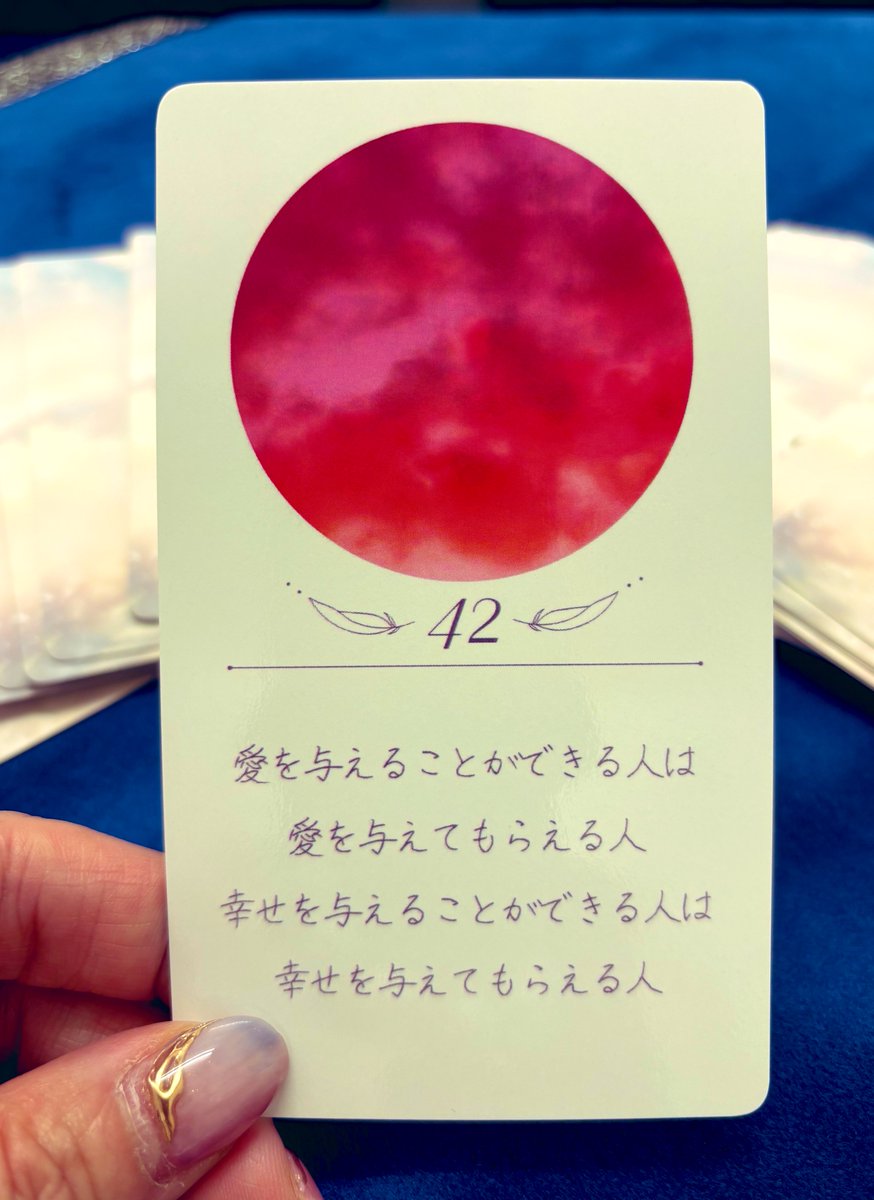 42
愛を与えることができる人は
愛を与えてもらえる人
幸せを与えることができる人は
幸せを与えてもらえる人